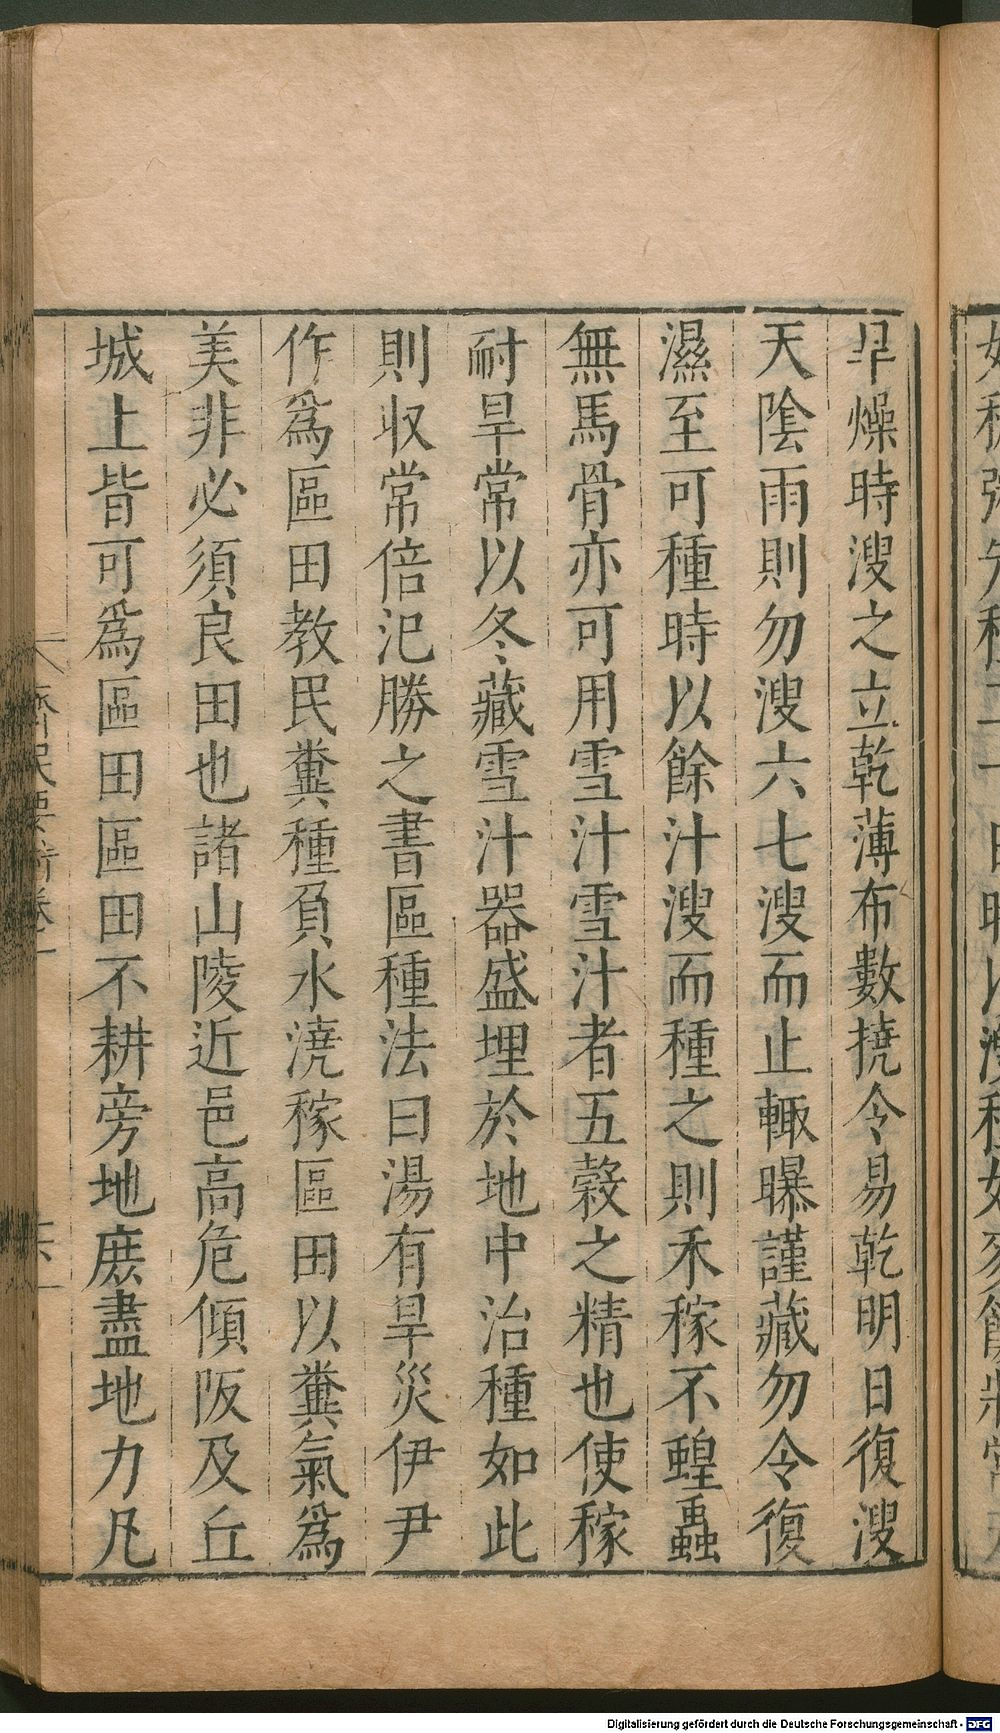 旱燥時溲之立乾薄布數撓令易乾明日復溲
天陰雨則勿溲六七溲而止輙曝謹藏勿令復
濕至可種時以餘汁溲而種之則禾稼不蝗蟲
無馬骨亦可用雪汁雪汁者五穀之精也使稼
耐旱常以冬藏雪汁器盛埋於地中治種如此
則収常倍氾勝之書區種法曰湯有旱災伊尹
作爲區田教民糞種負水澆稼區田以糞氣爲
美非必須良田也諸山陵近邑高危傾阪及丘
城上皆可爲區田區田不耕旁地庶盡地力凡
齊民要術卷一
Digitalisierung gefördert durch die Deutsche Forschungsgemeinschaft - DFG